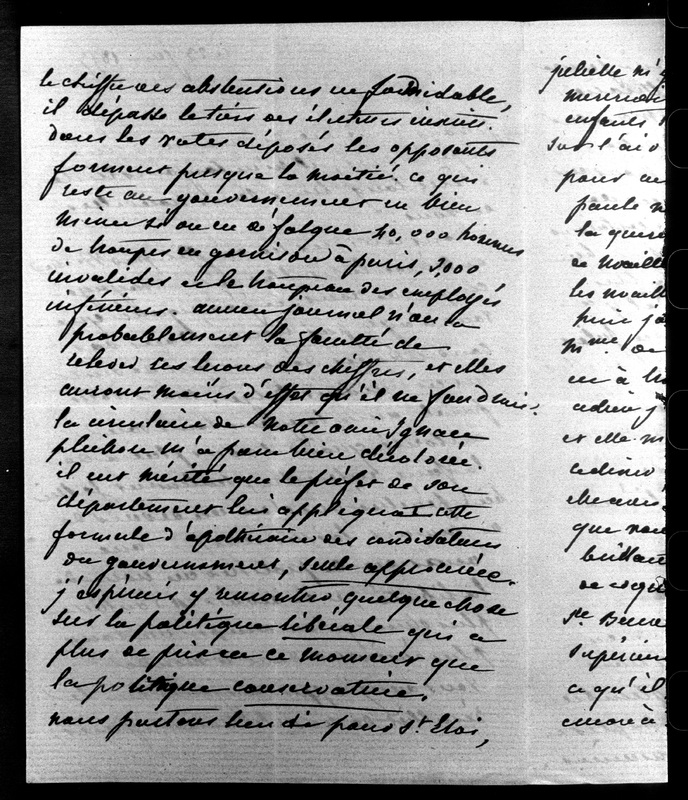 le chiffre des abstentions est formidable,
il dépasse le tiers des électeurs inscrits.
dans les votes déposés les opposants
forment presque la moitié. ce qui
reste au gouvernement est bien
mince si on en défalque 40,000 hommes
de troupes en garnison à paris, 3,000
invalides et le troupeau des employés
inférieurs. aucun journal n'aura
probablement la faculté de
relever ces leçons des chiffres, et elles
auront moins d'effet qu'il ne faudrait.
la circulaire de notre ami Ignace
plichon m'a paru bien décolorée.
il eut mérité que le préfet de son
département lui appliquat cette
formule d'apothicaire des candidatures
du gouvernement, seule approuvée.
j'espérais y rencontrer quelque chose
sur la politique libérale qui a
plus de prise en ce moment que
la politique conservatrice.
nous partons lundi pour St Eloi,
jeliette m'
enfants
sur l'air
pour
la
de noaill
les noaill
puis j'a
mme de
et à
adieu j
et elle m
adieu
que vous
brillan
St Beuve
Supérieur
ce qu'il
encore à